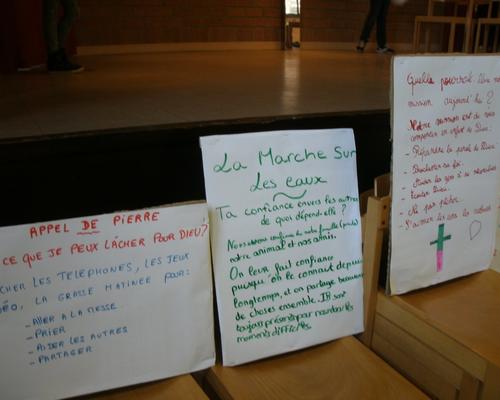 APPEL DE PIERRE
CE QUE JE PEUX LÂCHER POUR DIEU?
CHER LES TELEPHONES, LES JEUX
DÉO, LA GRASSE MATINÉE POUR:
- ALLER A LA MESSE
- PRIER
- AIDER LES AUTRES
- PARTAGER
La Marche Sur
Les eaux
Ta confiance envers les autres
de quoi dépend elle ?
Nous avons confiance de notre famille
notre animal et nos amis.
On leur fait confiance
puisqu'on le connait depuis
longtemps, et on partage beaucoup
de choses ensemble. Ils sont
toujours présents pour nous dans les
moments difficiles.
Quelle pourrait être
mission aujourd'hui ?
Notre mission est de
comporter en enfant de Dieu.
- Répandre la parole de Dieu.
- sa foi.
- les gens à se
- Ne pas pécher.
- J'aimer les uns les autres